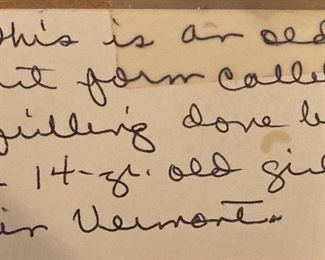 This is an old
art form calle
quilling done b
14-yr. old gir
in Vermont.